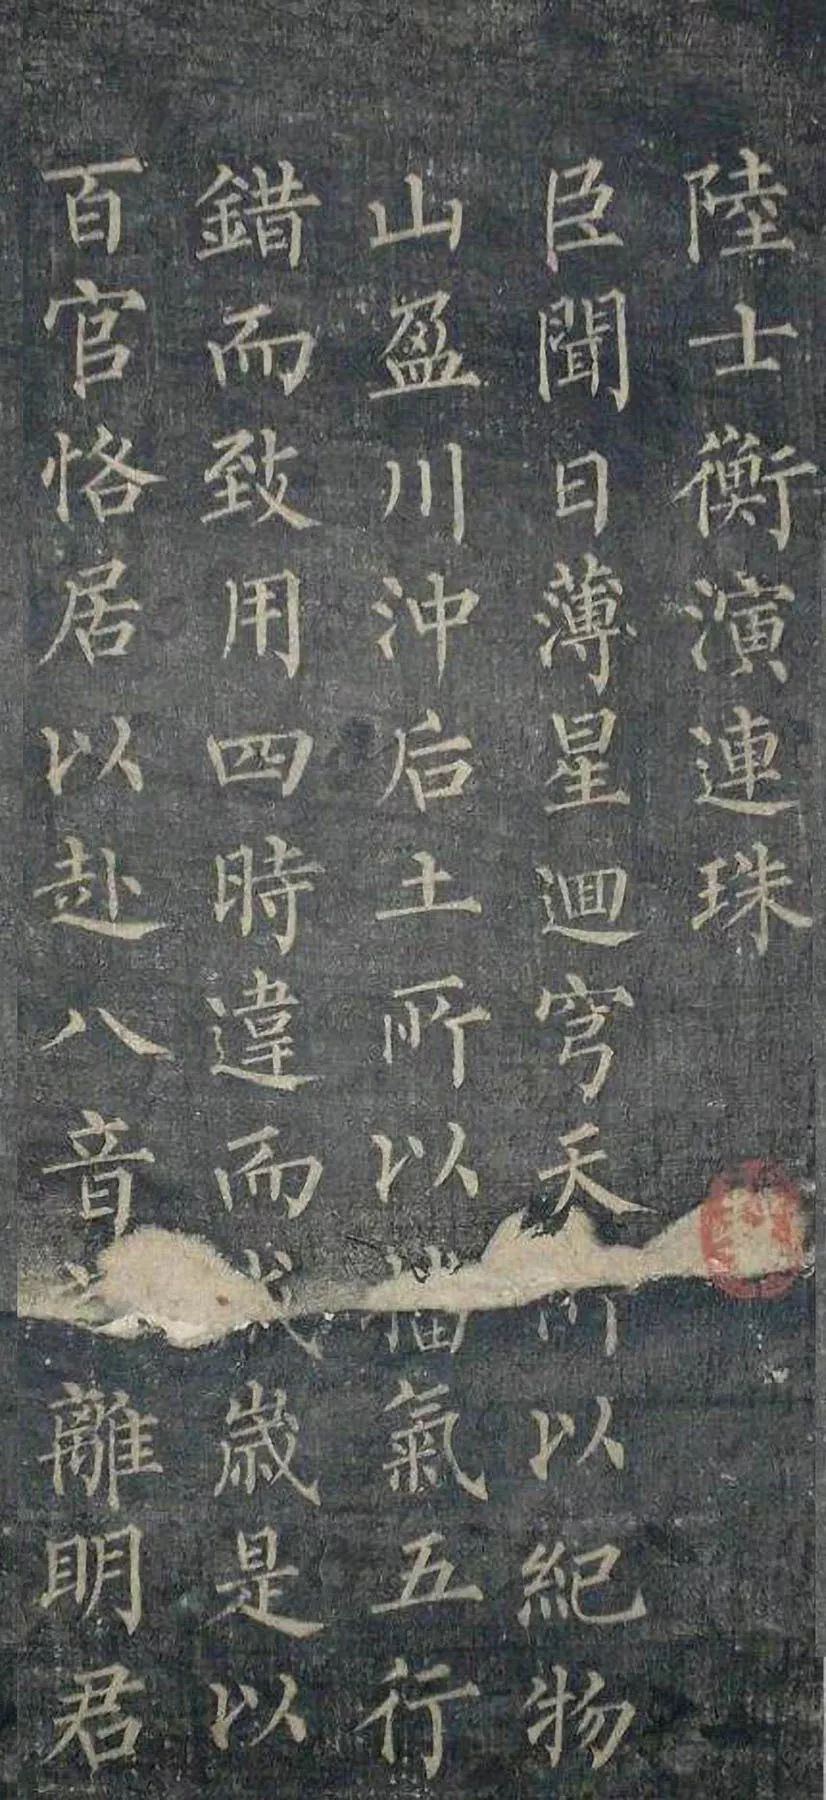 陸士衡演連珠
臣聞日薄星迴穹天所以紀物
山盈川沖后土所以播氣五行
錯而致用四時違而成歲是以
百官恪居以赴八音離明君